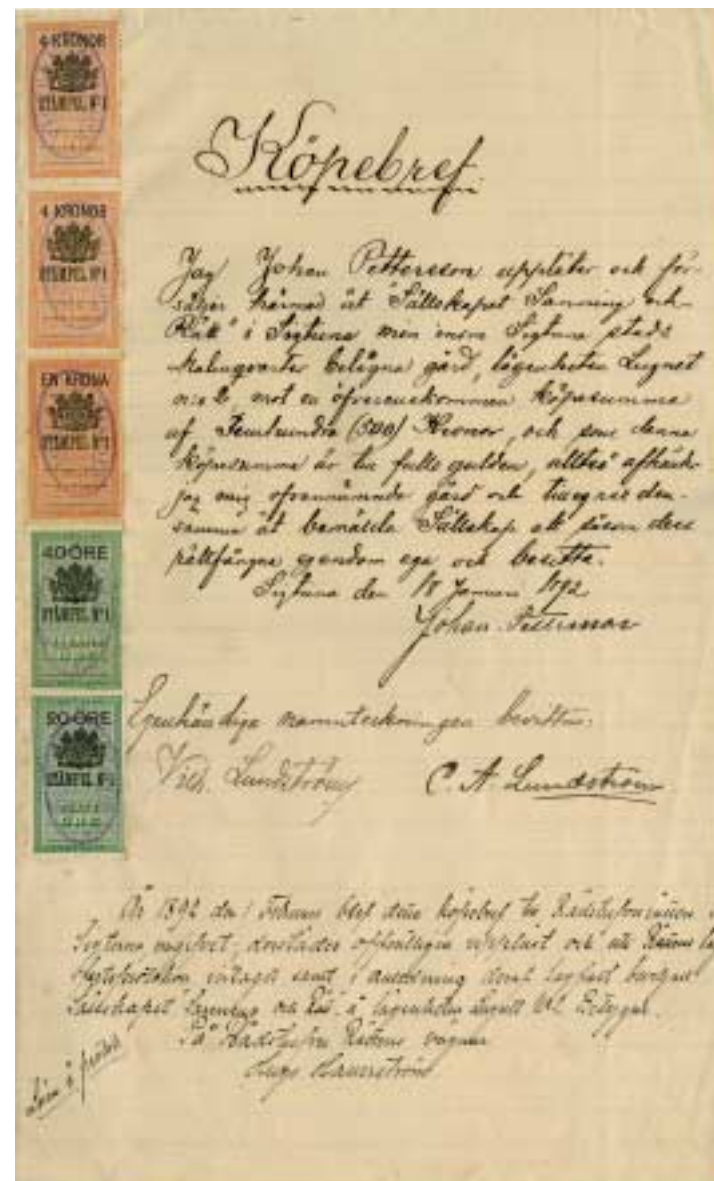 4 KRONOR
STÄMPEL Nº 1
4 KRONOR
STÄMPEL Nº 1
EN KRONA
STÄMPEL Nº 1
40 ÖRE
STÄMPEL Nº 1
20 ÖRE
STÄMPEL Nº 1
Köpebref
Jag Johan Pettersson upplåter och för-
säljer härmed åt "Sällskapet Sanning och
Rätt" i Sigtuna min inom Sigtuna stads
Malmqvarter belägna gård, lägenheten Lugnet
n:o 2, mot en öfverenskommen köpesumma
af Femhundra (500) Kronor, och som denna
köpesumma är till fullo gulden, alltså afhänder
jag mig ofvannämnde gård och den-
samma åt bemälda Sällskap att såsom dess
rättfångna egendom ega och besitta.
Sigtuna den 18 Januari 1892
Johan Pettersson
Egenhändiga namnteckningen bevittna:
Vilh. Lundström C. A. Lundström
År 1892 den 1 Februari blef detta köpebref till Rådstufvurätten i
Sigtuna ingifvet, derstädes offentligen uppläst och uti Rättens
intaget samt i anledning deraf lagfart
Sällskapet Sanning och Rätt å lägenheten
På Rådstufvu Rättens vägnar
Hugo